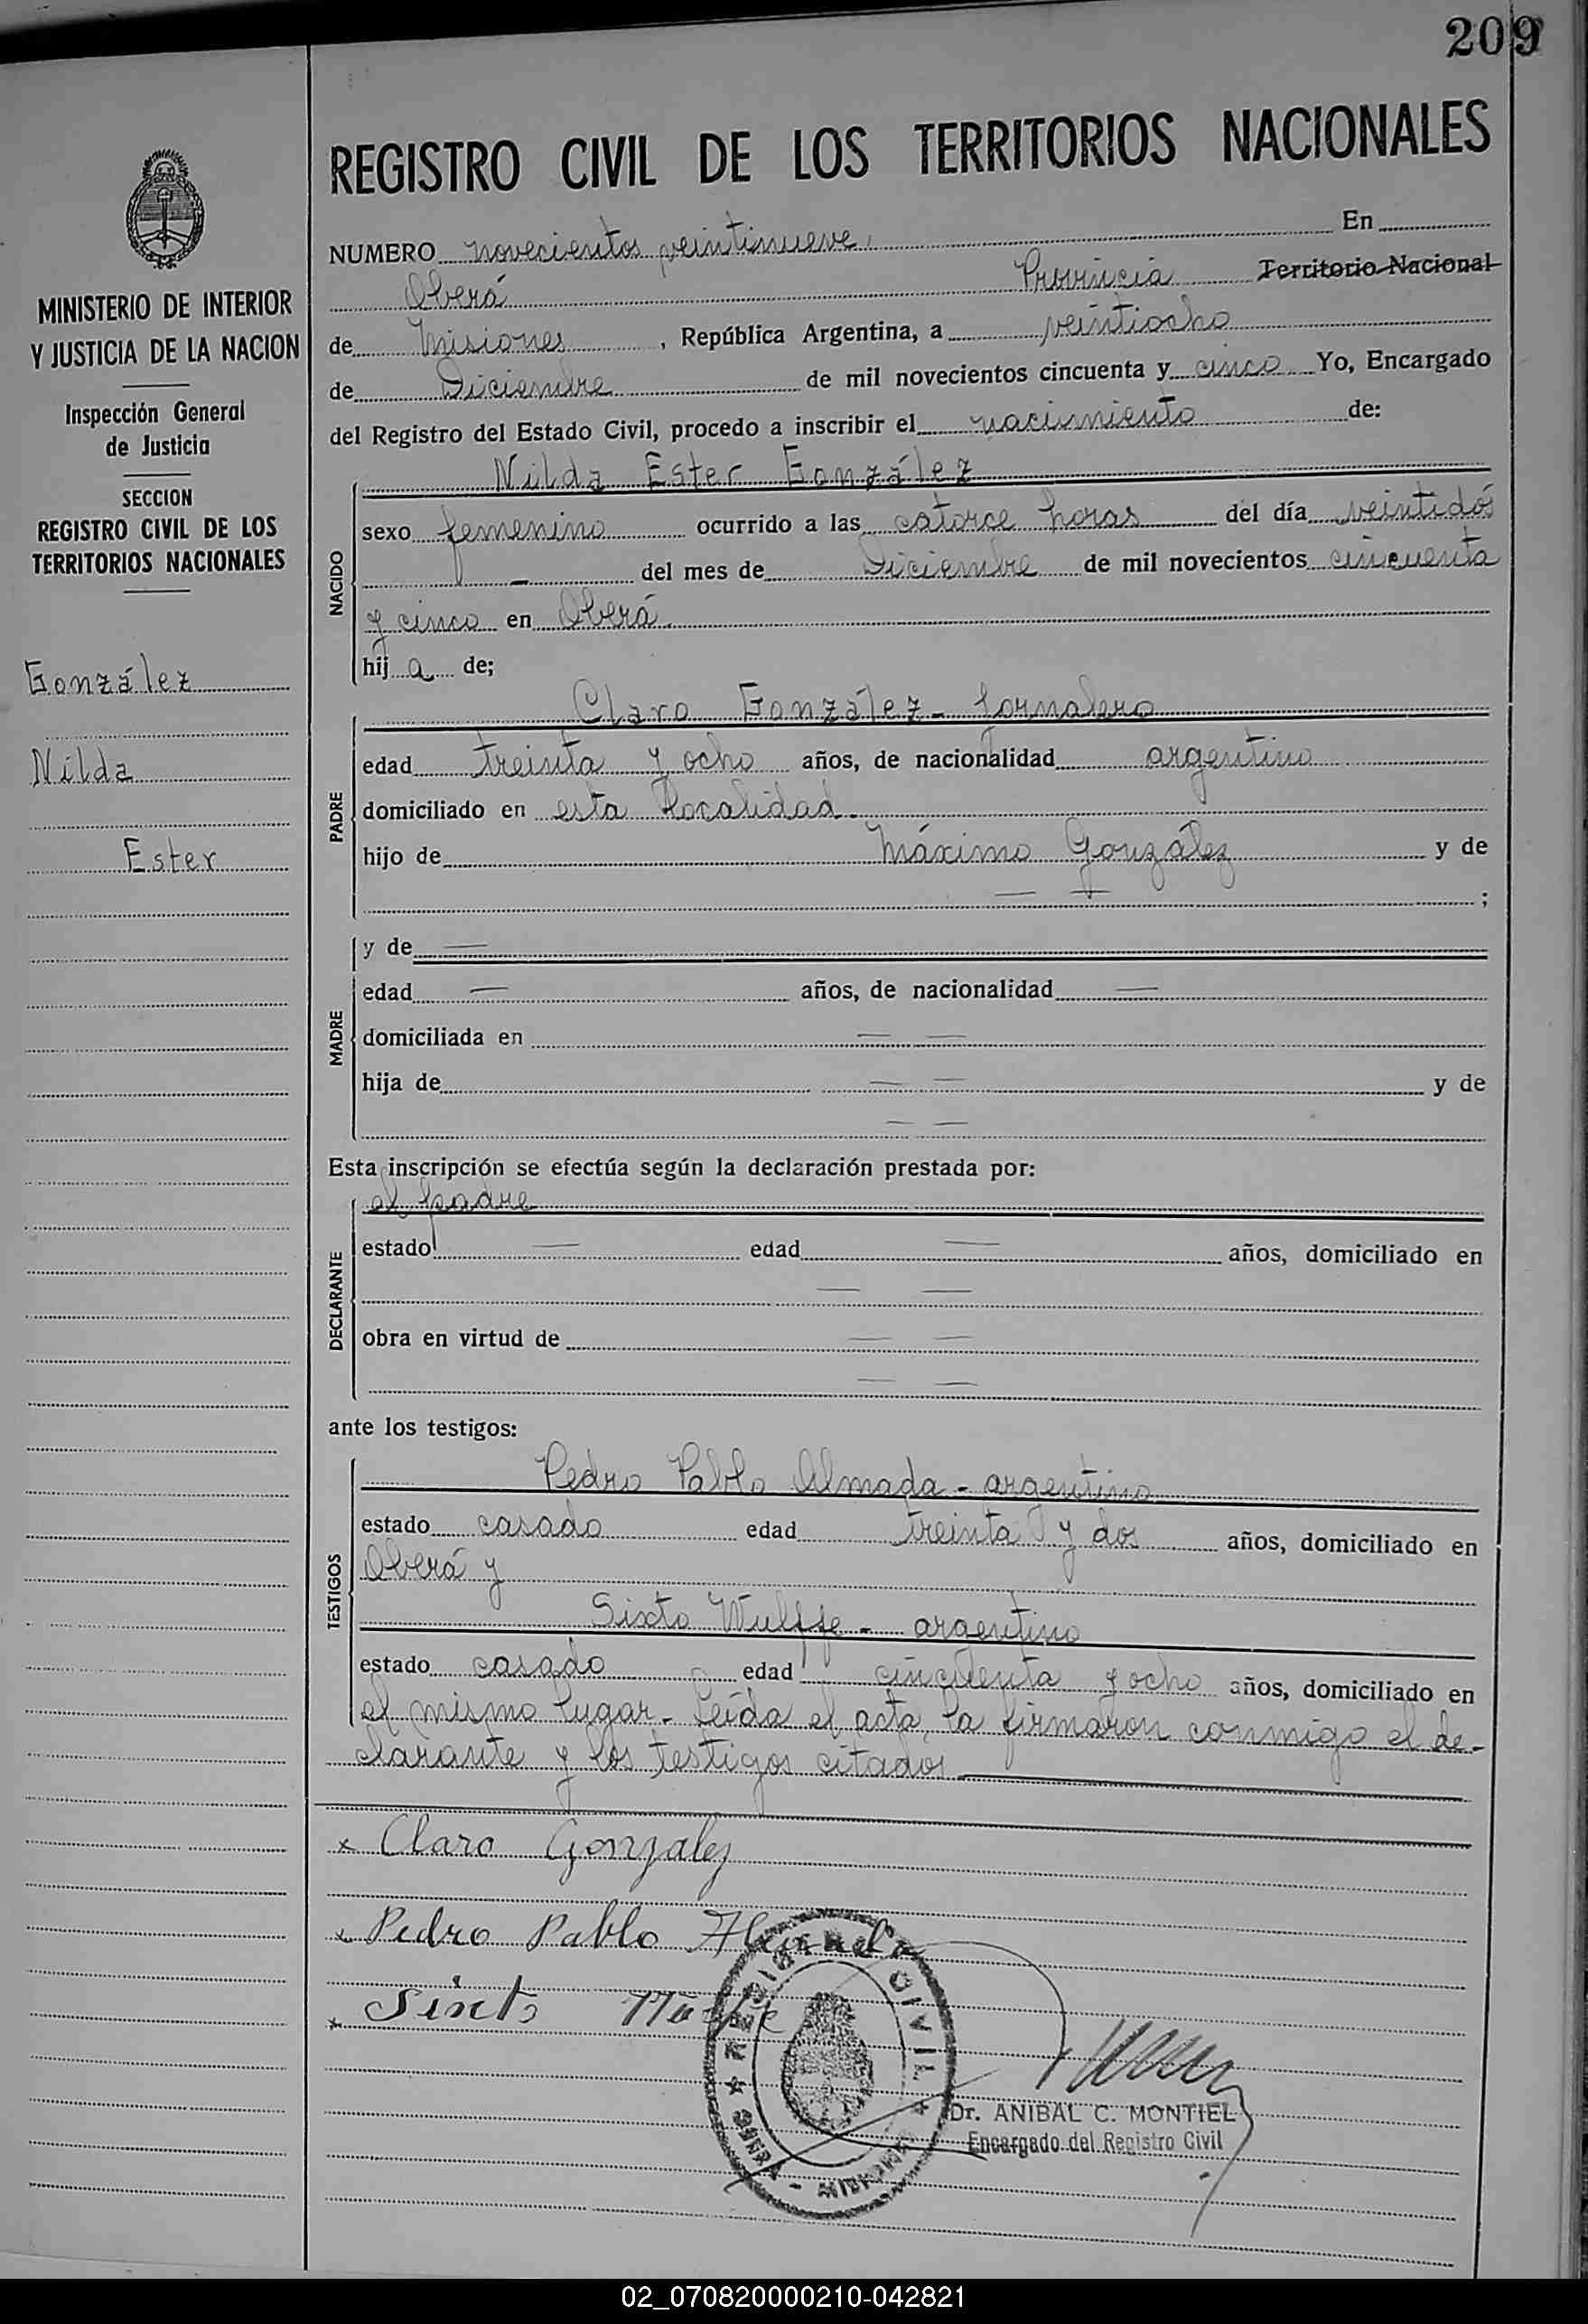 209
REGISTRO CIVIL DE LOS TERRITORIOS NACIONALES
MINISTERIO DE INTERIOR
Y JUSTICIA DE LA NACION
Inspección General
de Justicia
SECCION
REGISTRO CIVIL DE LOS
TERRITORIOS NACIONALES
González
Nilda
Ester
NUMERO novecientos veintinueve. En
Oberá Provincia Territorio Nacional
de Misiones, República Argentina, a veintiocho
de Diciembre de mil novecientos cincuenta y cinco Yo, Encargado
del Registro del Estado Civil, procedo a inscribir el nacimiento de:
NACIDO
Nilda Ester González
sexo femenino ocurrido a las catorce horas del día veintidós
— del mes de Diciembre de mil novecientos cincuenta
y cinco en Oberá.
hij a de;
PADRE
Claro González - Jornalero
edad treinta y ocho años, de nacionalidad argentino
domiciliado en esta localidad.
hijo de Máximo González y de
— — ;
MADRE
y de —
edad — años, de nacionalidad —
domiciliada en — —
hija de — — y de
— —
Esta inscripción se efectúa según la declaración prestada por:
DECLARANTE
el padre
estado — edad — años, domiciliado en
— —
obra en virtud de — —
— —
ante los testigos:
TESTIGOS
Pedro Pablo Almada - argentino
estado casado edad treinta y dos años, domiciliado en
Oberá y
Sixto Wulffe - argentino
estado casado edad cincuenta y ocho años, domiciliado en
el mismo lugar - Leída el acta, la firmaron conmigo el de-
clarante y los testigos citados
x Claro Gonzalez
x Pedro Pablo Almada
x Sixto
REGISTRO CIVIL
OBERA - MISIONES
Dr. ANIBAL C. MONTIEL
Encargado del Registro Civil
02_070820000210-042821